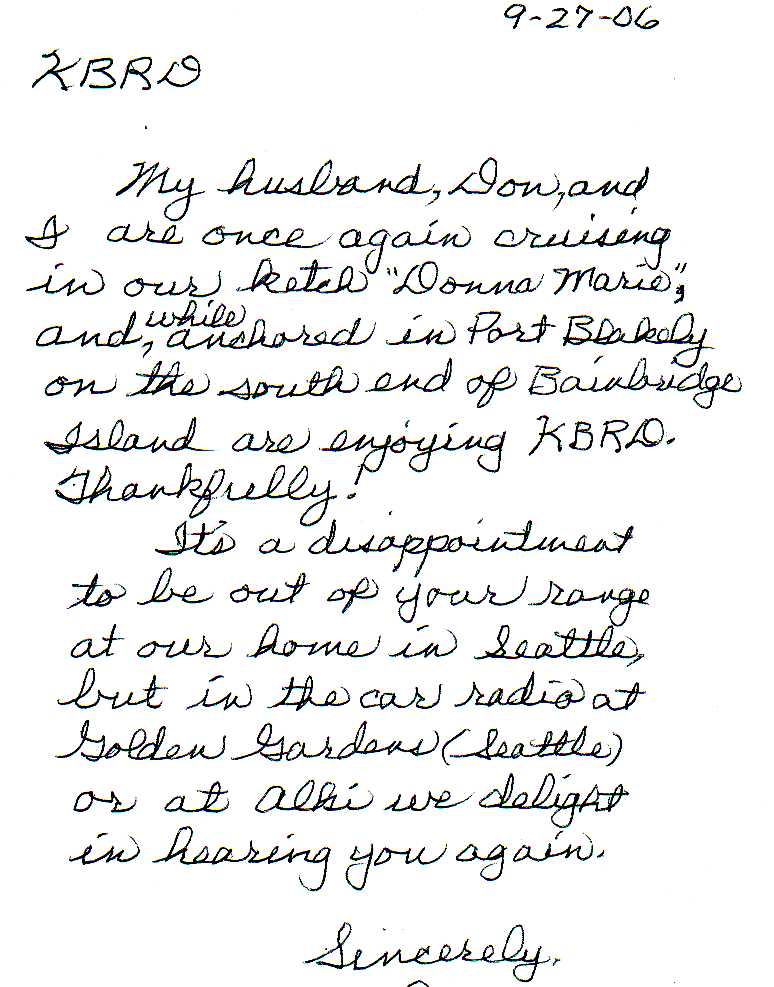 9-27-06
KBRD
My husband, Don, and
I are once again cruising
in our ketch "Donna Marie",
while
and, anchored in Port Blakely
on the south end of Bainbridge
Island are enjoying KBRD.
Thankfully!
It's a disappointment
to be out of your range
at our home in Seattle,
but in the car radio at
Golden Gardens (Seattle)
or at Alki we delight
in hearing you again.
Sincerely,